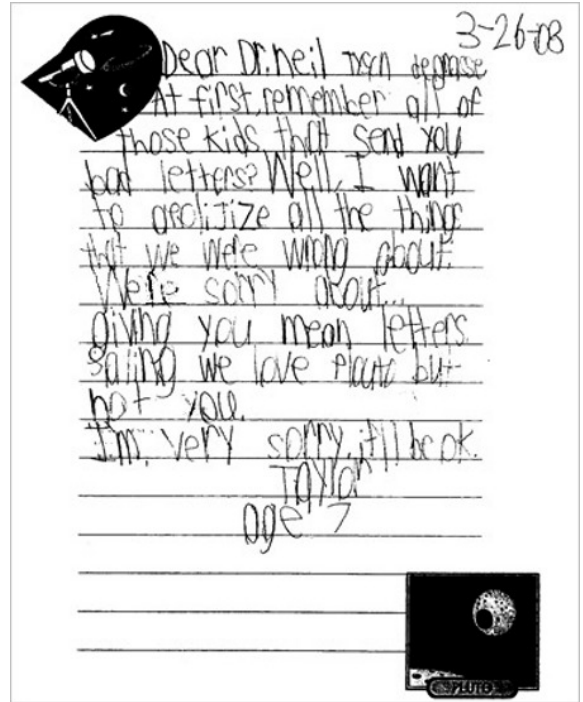 3-26-08
Dear Dr. neil degrase
At first, remember all of
those kids that send you
bad letters? Well, I want
to apolijize all the things
that we were wrong about.
We're sorry about...
giving you mean letters
saling we love Plouto but
not you.
I'm very sorry, it'll be ok.
Taylor
age 7
PLUTO